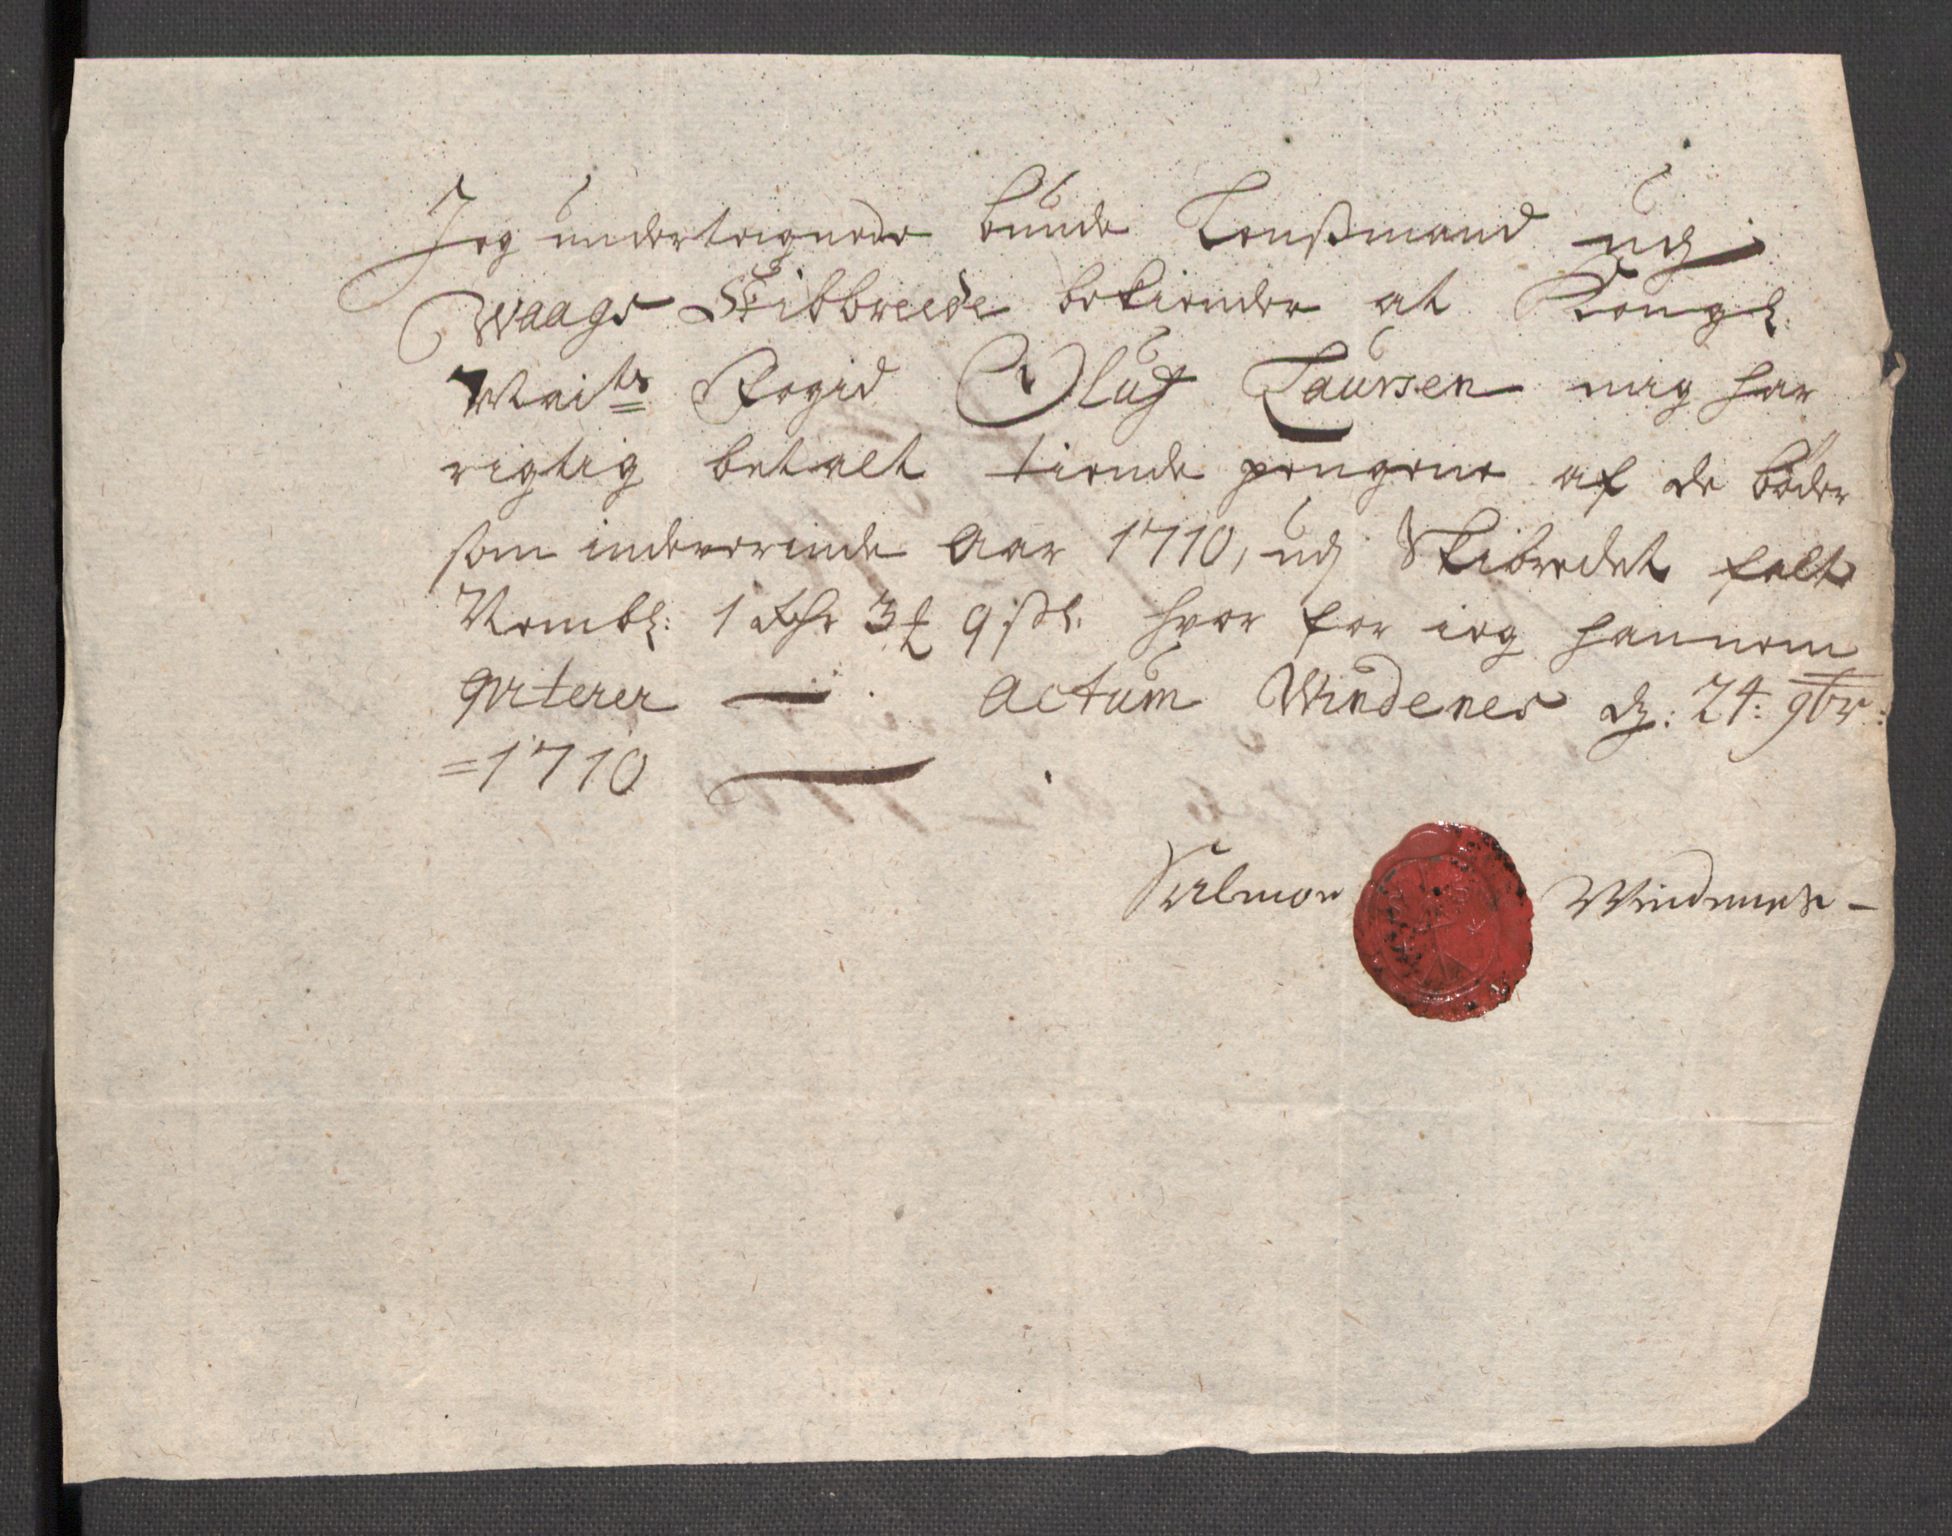 Jeg undertegnede bunde Lenßmand udj
Waags Skibbreede bekiender at Kongl:
Maits Fogid Oluf Laursen mig har
rigtig betalt tiende pengene af de bøder
som indeverende Aar 1710, udj Skibredet falt
Nembl: 1 Rdr 3 ƒ 9 ßl. hvor for ieg hannem
qviterer — . Actum Windenes dj: 24: 9br:
=1710 —
Salmon Windenes –